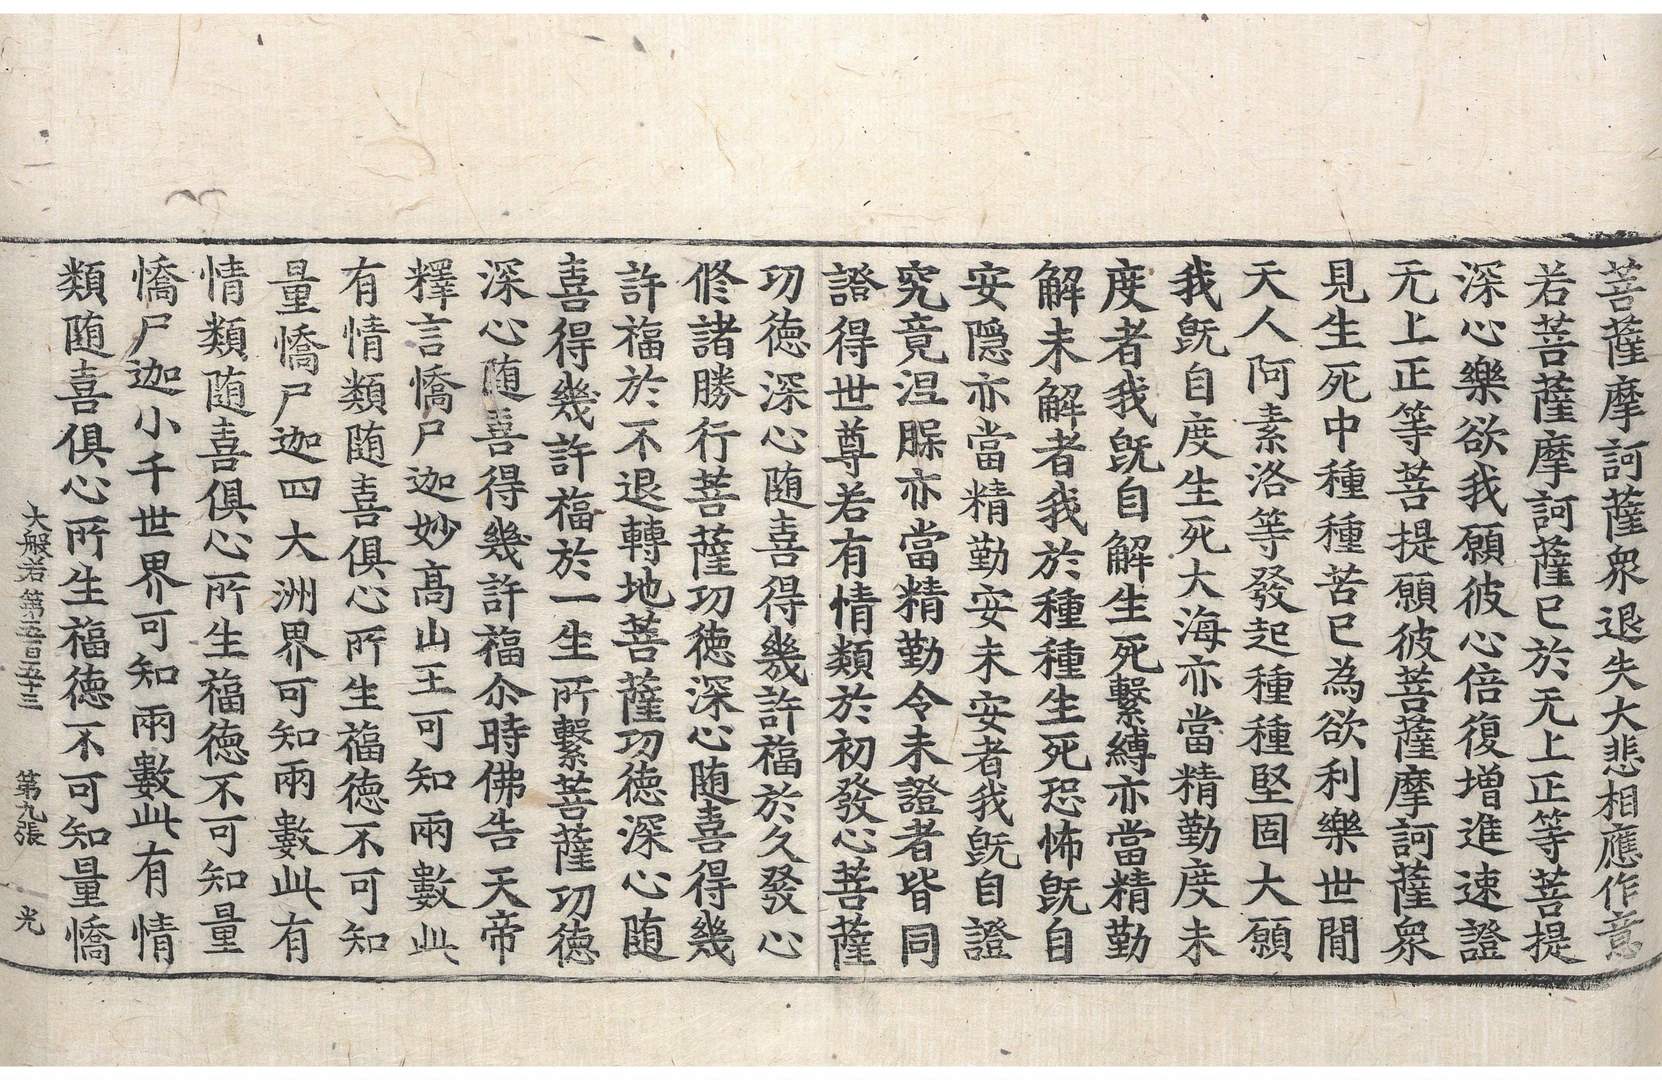 菩薩摩訶薩衆退失大悲相應作意
若菩薩摩訶薩已於无上正等菩提
深心樂欲我願彼心倍復增進速證
无上正等菩提願彼菩薩摩訶薩衆
見生死中種種苦已為欲利樂世間
天人阿素洛等發起種種堅固大願
我旣自度生死大海亦當精勤度未
度者我旣自解生死繫縛亦當精勤
解未解者我於種種生死恐怖旣自
安隱亦當精勤安未安者我旣自證
究竟涅脲亦當精勤令未證者皆同
證得世尊若有情類於初發心菩薩
功德深心随喜得幾許福於久發心
修諸勝行菩薩功德深心随喜得幾
許福於不退轉地菩薩功德深心随
喜得幾許福於一生所繫菩薩功德
深心随喜得幾許福尒時佛告天帝
釋言憍尸迦妙高山王可知兩數此
有情類随喜俱心所生福德不可知
量憍尸迦四大洲界可知兩數此有
情類随喜俱心所生福德不可知量
憍尸迦小千世界可知兩數此有情
類随喜俱心所生福德不可知量憍
大般若第五百五十三 第九張 光